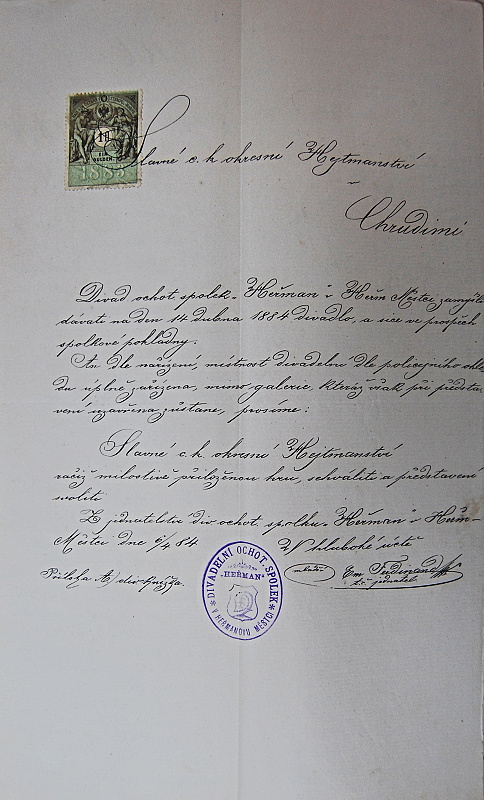 EIN
GULDEN
1883
Slavné c. k. okresní Hejtmanství
v
Chrudimi
Divad. ochot. spolek „Heřman“ v Heřm. Městci zamýšlí
dávati na den 14 dubna 1884 divadlo, a sice ve prospěch
spolkové pokladny.
An dle nařízení, místnost divadelní dle policejního ohle-
du úplně zařízena, mimo galerie, kteráž však při předsta-
vení uzavřena zůstane, prosíme:
Slavné c. k. okresní Hejtmanství
račiž milostivě přiloženou hru, schváliti a představení
svoliti
Z jednatelství div. ochot. spolku „Heřman“ v Heřm-
Městci dne 6/4 84 V hluboké úctě
Příloha A) div. knížka. Em Ferdinand
t. č. jednatel
* DIVADELNÍ OCHOT. SPOLEK *
„HEŘMAN“
V HEŘMANOVU MĚSTCI